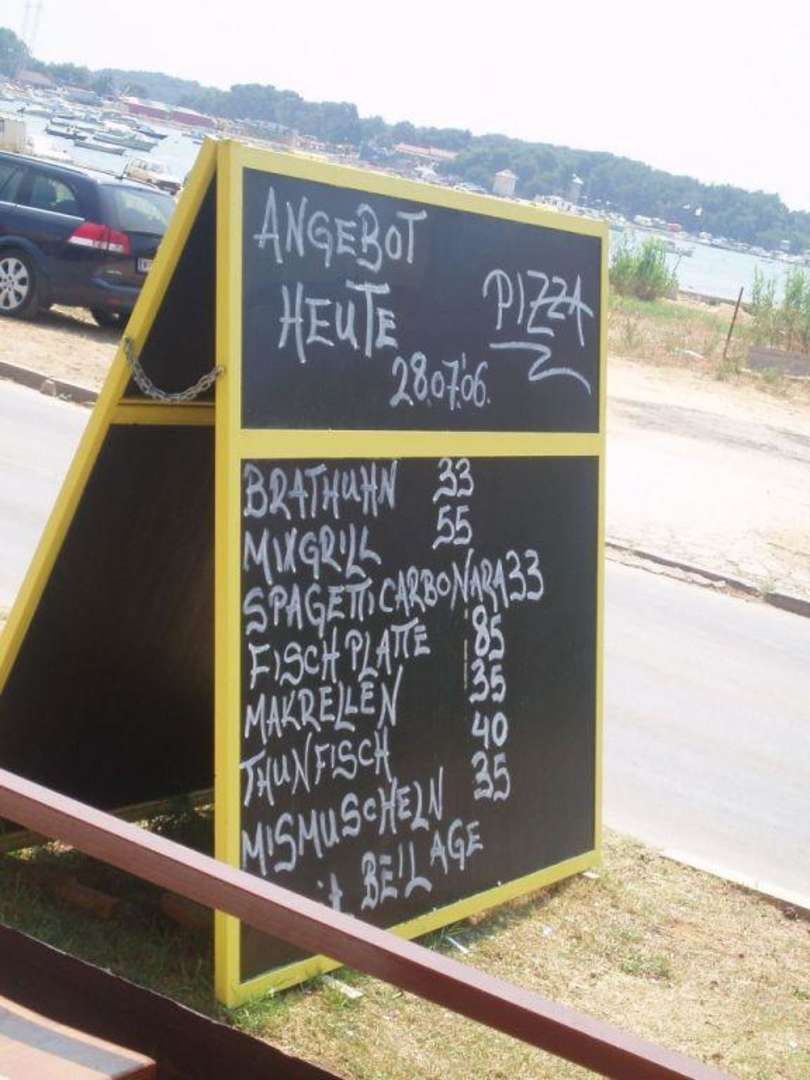 ANGEBOT
HEUTE PIZZA
28.07.'06.
BRATHUHN 33
MIXGRILL 55
SPAGETTI CARBONARA 33
FISCHPLATTE 85
MAKRELLEN 35
THUNFISCH 40
MISMUSCHELN 35
BEILAGE